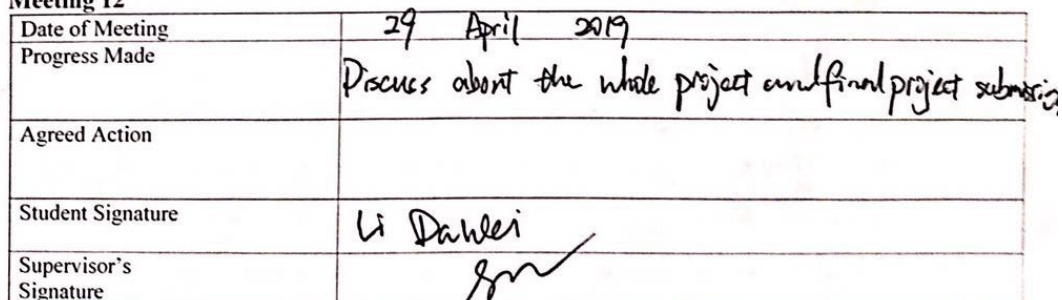 Meeting 12
Date of Meeting 29 April 2019
Progress Made
Discuss about the whole project and final project submission
Agreed Action
Student Signature Li Dawei
Supervisor's
Signature